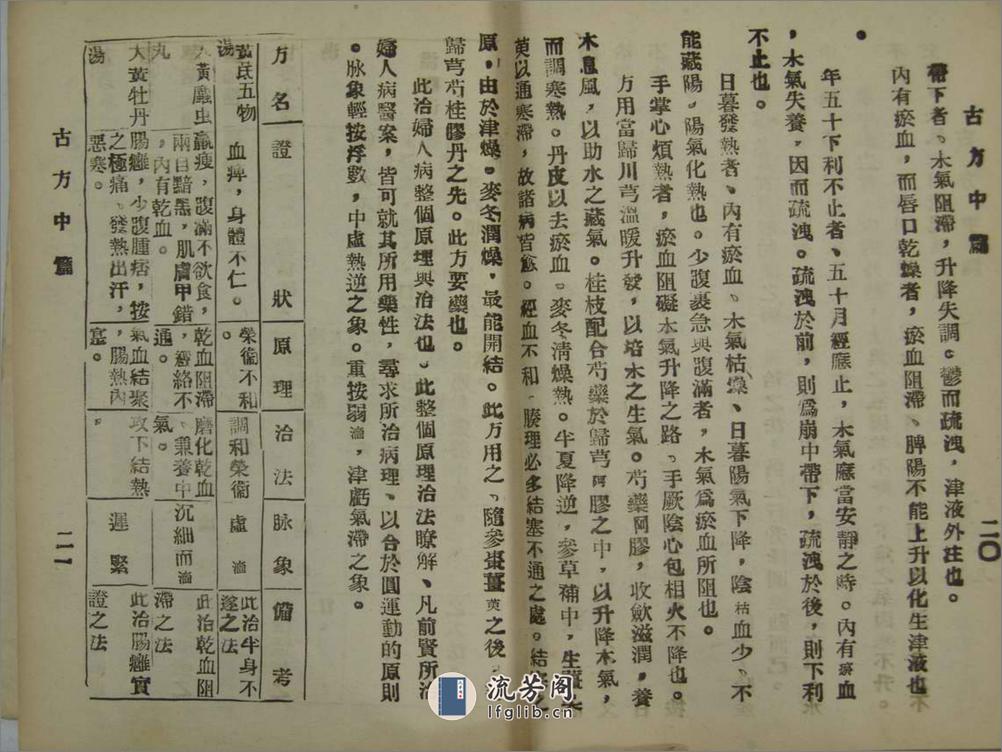 古方中篇
二〇
帶下者、木氣阻滯，升降失調。鬱而疏洩，津液外注也。
內有瘀血，而唇口乾燥者，瘀血阻滯、脾陽不能上升以化生津液也
。
年五十下利不止者、五十月經應止，木氣應當安靜之時。內有瘀血
，木氣失養，因而疏洩。疏洩於前，則爲崩中帶下，疏洩於後，則下利
不止也。
日暮發熱者、內有瘀血、木氣枯燥、日暮陽氣下降，陰枯血少、不
能藏陽，陽氣化熱也。少腹裹急與腹滿者，木氣爲瘀血所阻也。
手掌心煩熱者，瘀血阻礙木氣升降之路、手厥陰心包相火不降也。
方用當歸川芎溫暖升發，以培木之生氣。芍藥阿膠，收歛滋潤，養
木息風，以助水之藏氣。桂枝配合芍藥於歸芎阿膠之中，以升降木氣，
而調寒熱。丹皮以去瘀血。麥冬清燥熱。半夏降逆，參草補中，生薑吳
萸以通寒滯，故諸病皆愈。經血不和，腠理必多結塞不通之處。結之
原，由於津燥。麥冬潤燥，最能開結。此方用之、隨參棗薑萸之後，
歸芎芍桂膠丹之先。此方要藥也。
此治婦人病整個原理與治法也。此整個原理治法瞭解、凡前賢所治
婦人病醫案，皆可就其所用藥性，尋求所治病理、以合於圓運動的原則
。脉象輕按浮數，中虛熱逆之象。重按弱濇，津虧氣滯之象。
方名　證狀　原理　治法　脉象　備考
黃芪五物湯　血痺，身體不仁。　榮衞不和。　調和榮衞　虛濇　此治半身不遂之法
大黃䗪虫丸　羸瘦，腹滿不欲食，兩目黯黑，肌膚甲錯，內有乾血。　乾血阻滯，經絡不通。　磨化乾血、兼養中氣。　沉細而濇　此治乾血阻滯之法
大黃牡丹湯　腸癰，少腹腫痞，按之極痛、發熱出汗，惡寒。　氣血結聚，腸熱內塞。　攻下結熱　遲緊　此治腸癰實證之法
古方中篇
二一
流芳阁
lfglib.cn